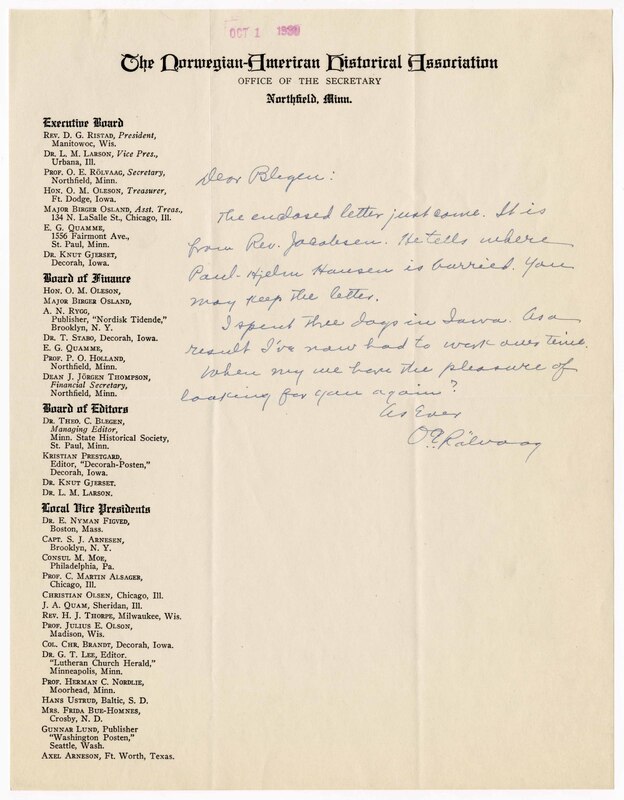 OCT 1 1930
The Norwegian-American Historical Association
OFFICE OF THE SECRETARY
Northfield, Minn.
Executive Board
REV. D. G. RISTAD, President,
Manitowoc, Wis.
DR. L. M. LARSON, Vice Pres.,
Urbana, Ill.
PROF. O. E. RÖLVAAG, Secretary,
Northfield, Minn.
HON. O. M. OLESON, Treasurer,
Ft. Dodge, Iowa.
MAJOR BIRGER OSLAND, Asst. Treas.,
134 N. LaSalle St., Chicago, Ill.
E. G. QUAMME,
1556 Fairmont Ave.,
St. Paul, Minn.
DR. KNUT GJERSET,
Decorah, Iowa.
Board of Finance
HON. O. M. OLESON,
MAJOR BIRGER OSLAND,
A. N. RYGG,
Publisher, "Nordisk Tidende,"
Brooklyn, N. Y.
DR. T. STABO, Decorah, Iowa.
E. G. QUAMME,
PROF. P. O. HOLLAND,
Northfield, Minn.
DEAN J. JÖRGEN THOMPSON,
Financial Secretary,
Northfield, Minn.
Board of Editors
DR. THEO. C. BLEGEN,
Managing Editor,
Minn. State Historical Society,
St. Paul, Minn.
KRISTIAN PRESTGARD,
Editor, "Decorah-Posten,"
Decorah, Iowa.
DR. KNUT GJERSET.
DR. L. M. LARSON.
Local Vice Presidents
DR. E. NYMAN FIGVED,
Boston, Mass.
CAPT. S. J. ARNESEN,
Brooklyn, N. Y.
CONSUL M. MOE,
Philadelphia, Pa.
PROF. C. MARTIN ALSAGER,
Chicago, Ill.
CHRISTIAN OLSEN, Chicago, Ill.
J. A. QUAM, Sheridan, Ill.
REV. H. J. THORPE, Milwaukee, Wis.
PROF. JULIUS E. OLSON,
Madison, Wis.
COL. CHR. BRANDT, Decorah, Iowa.
DR. G. T. LEE, Editor.
"Lutheran Church Herald,"
Minneapolis, Minn.
PROF. HERMAN C. NORDLIE,
Moorhead, Minn.
HANS USTRUD, Baltic, S. D.
MRS. FRIDA BUE-HOMNES,
Crosby, N. D.
GUNNAR LUND, Publisher
"Washington Posten,"
Seattle, Wash.
AXEL ARNESON, Ft. Worth, Texas.
Dear Blegen:
The enclosed letter just come. It is
from Rev. Jacobsen. He tells where
Paul-Hjelm Hansen is burried. You
may keep the letter.
I spent three days in Iowa. As a
result I've now had to work over time.
When my we have the pleasure of
looking for you again?
As Ever
O E Rölvaag